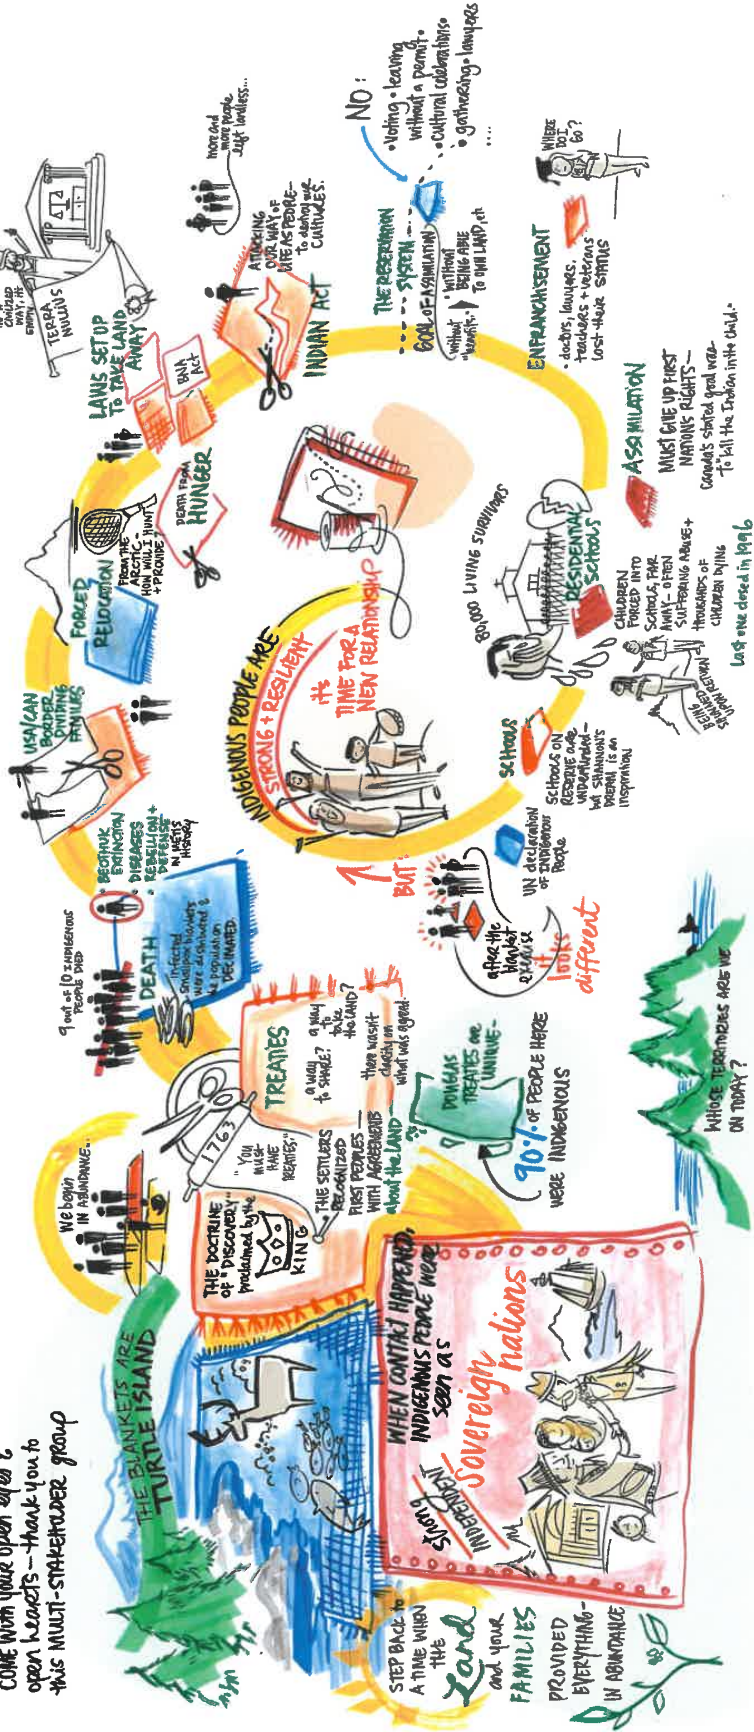 COME WITH your open eyes &
open hearts – thank you to
this MULTI-STAKEHOLDER group
THE BLANKETS ARE
TURTLE ISLAND
STEP BACK to
A TIME WHEN
THE
Land
and your
FAMILIES
PROVIDED
EVERYTHING –
IN ABUNDANCE
WHEN CONTACT HAPPENED,
INDIGENOUS PEOPLE WERE
seen as
Strong
INDEPENDENT
Sovereign
nations
We begin
IN ABUNDANCE...
THE DOCTRINE
OF "DISCOVERY"
proclaimed by the
KING
1763
"YOU
must
HAVE
TREATIES."
• THE SETTLERS
RECOGNIZED
FIRST PEOPLES –
WITH AGREEMENTS
about the LAND –
TREATIES
a way
to SHARE?
a way
to
take
the LAND?
there wasn't
clarity on
what was agreed.
DOUGLAS
TREATIES are
UNIQUE –
90% OF PEOPLE HERE
WERE INDIGENOUS
WHOSE TERRITORIES ARE WE
ON TODAY?
9 out of 10 INDIGENOUS
PEOPLE DIED
DEATH
infected
smallpox blankets
were distributed &
the population
DECIMATED.
• BEOTHUK
EXTINCTION
• DISEASES
• REBELLION +
DEFENSE
IN METIS
HISTORY
USA/CAN
BORDER
DIVIDING
FAMILIES
FORCED
RELOCATION
FROM THE
ARCTIC –
HOW WILL I HUNT
+ PROVIDE?
DEATH FROM
HUNGER
LAWS SET UP
TO TAKE LAND
AWAY
BNA
Act
WAY, it's
EMPTY
TERRA
NULLIUS
INDIAN ACT
ATTACKING
OUR WAY OF
LIFE AS PEOPLE –
to destroy our
CULTURES.
more and
more people
left landless...
THE RESERVATION
SYSTEM
GOAL OF ASSIMILATION
without
"benefits."
• WITHOUT
BEING ABLE
TO OWN LAND, etc
NO:
• Voting • leaving
without a permit •
• Cultural celebrations •
• gathering • lawyers
....
ENFRANCHISEMENT
• doctors, lawyers,
teachers + veterans
lost their STATUS
WHERE
DO I
GO?
ASSIMILATION
MUST GIVE UP FIRST
NATIONS RIGHTS –
Canada's stated goal was
"To kill the Indian in the child."
80,000 LIVING SURVIVORS
RESIDENTIAL
SCHOOLS
CHILDREN
FORCED INTO
SCHOOLS, FAR
AWAY – OFTEN
SUFFERING ABUSE +
thousands of
CHILDREN DYING
Last one closed in 1996
BEING
SHAMED
UPON
RETURN
SCHOOLS
SCHOOLS ON
RESERVE are
underfunded –
but SHANNON'S
DREAM is an
inspiration
UN declaration
OF INDIGENOUS
People
BUT:
after the
blanket
exercise
it
looks
different
INDIGENOUS PEOPLE ARE
STRONG + RESILIENT
it's
TIME FOR A
NEW RELATIONSHIP